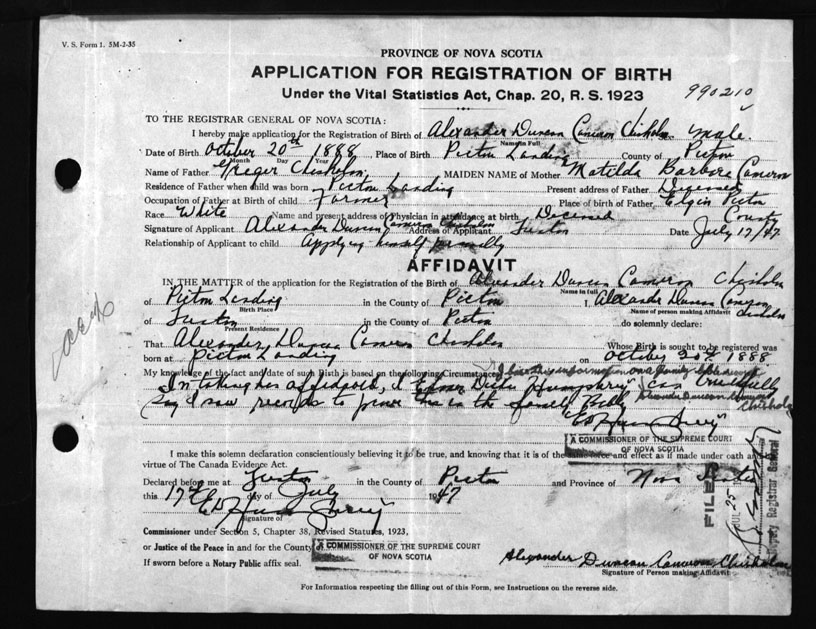 V. S. Form 1. 5M-2-35
PROVINCE OF NOVA SCOTIA
APPLICATION FOR REGISTRATION OF BIRTH
Under the Vital Statistics Act, Chap. 20, R. S. 1923
990210
TO THE REGISTRAR GENERAL OF NOVA SCOTIA:
I hereby make application for the Registration of Birth of Alexander Duncan Cameron Chisholm Sex male
Name in Full
Date of Birth October 20th 1888 Place of Birth Pictou Landing County of Pictou
Month Day Year
Name of Father Chisholm MAIDEN NAME of Mother Matilda Barbara Cameron
Residence of Father when child was born Pictou Landing Present address of Father Deceased
Occupation of Father at Birth of child Farmer Place of birth of Father Elgin Pictou County
Race White Name and present address of Physician in attendance at birth Deceased
Signature of Applicant Alexander Duncan Cameron Chisholm Address of Applicant Date July 17/47
Relationship of Applicant to child Applying himself personally
AFFIDAVIT
IN THE MATTER of the application for Registration of the Birth of Alexander Duncan Cameron Chisholm
Name in full
of Pictou Landing in the County of Pictou I, Alexander Duncan Cameron Chisholm
Birth Place Name of person making Affidavit
of in the County of Pictou do solemnly declare:
Present Residence
That Alexander Duncan Cameron Chisholm Whose Birth is sought to be registered was
born at Pictou Landing on October 20th 1888
My knowledge of the fact and date of such Birth is based on the following Circumstances: I information on a family
In taking his I Humphrey can truthfully
say I saw records to prove this in the family Bible Alexander Duncan Cameron Chisholm
A COMMISSIONER OF THE SUPREME COURT
OF NOVA SCOTIA
I make this solemn declaration conscientiously believing it to be true, and knowing that it is of the same force and effect as if made under oath and by
virtue of The Canada Evidence Act.
Declared before me at in the County of Pictou and Province of Nova Scotia
this 17th day of July 1947
Signature of
Commissioner under Section 5, Chapter 38, Revised Statutes, 1923,
or Justice of the Peace in and for the County of
A COMMISSIONER OF THE SUPREME COURT
OF NOVA SCOTIA
If sworn before a Notary Public affix seal.
FILED
JUL 25
Deputy Registrar General
Alexander Duncan Cameron Chisholm
Signature of Person making Affidavit
For Information respecting the filling out of this Form, see Instructions on the reverse side.